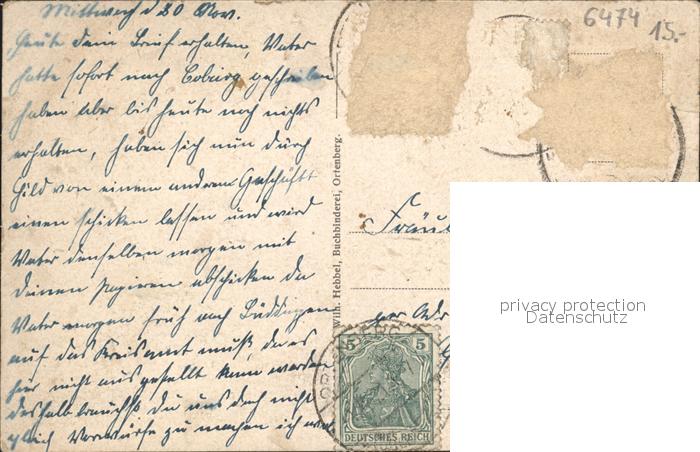 Mittwoch d 20 Nov.
Heute dein Brief erhalten, Vater
hatte sofort nach Coburg geschrieben
haben aber bis heute noch nichts
erhalten, haben sich nun durch
Hild von einem andren Geschäft
einen schicken lassen und wird
Vater denselben morgen mit
deinen Papieren abschicken da
Vater morgen früh nach Büdingen
auf das Kreisamt muß, da es
hier nicht ausgestellt kann werden
deshalb brauchst du uns doch nicht
gleich Vorwürfe zu machen ich
6474
15.-
Wilh. Hebbel, Buchbinderei, Ortenberg.
Fräul
per Adr
5 5
DEUTSCHES REICH
privacy protection
Datenschutz